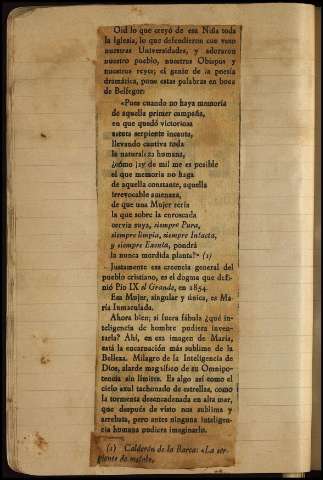 Oíd lo que creyó de esa Niña toda
la Iglesia, lo que defendieron con voto
nuestras Universidades, y adoraron
nuestro pueblo, nuestros Obispos y
nuestros reyes; el genio de la poesía
dramática, pone estas palabras en boca
de Belfegor:
«Pues cuando no haya memoria
de aquella primer campaña,
en que quedó victoriosa
astuta serpiente incauta,
llevando cautiva toda
la naturaleza humana,
¿cómo ¡ay de mí! me es posible
el que memoria no haga
de aquella constante, aquella
irrevocable amenaza,
de que una Mujer sería
la que sobre la enroscada
cerviz suya, siempre Pura,
siempre limpia, siempre Intacta,
y siempre Exenta, pondrá
la nunca mordida planta?» (1)
Justamente esa creencia general del
pueblo cristiano, es el dogma que defi-
nió Pío IX el Grande, en 1854.
Esa Mujer, singular y única, es Ma-
ría Inmaculada.
Ahora bien; si fuera fábula ¿qué in-
teligencia de hombre pudiera inven-
tarla? Ahí, en esa imagen de María,
está la encarnación más sublime de la
Belleza. Milagro de la Inteligencia de
Dios, alarde magnífico de su Omnipo-
tencia sin límites. Es algo así como el
cielo azul tachonado de estrellas, como
la tormenta desencadenada en alta mar,
que después de visto nos sublima y
arrebata, pero antes ninguna inteligen-
cia humana pudiera imaginarlo.
(1) Calderón de la Barca: «La ser-
piente de metal».